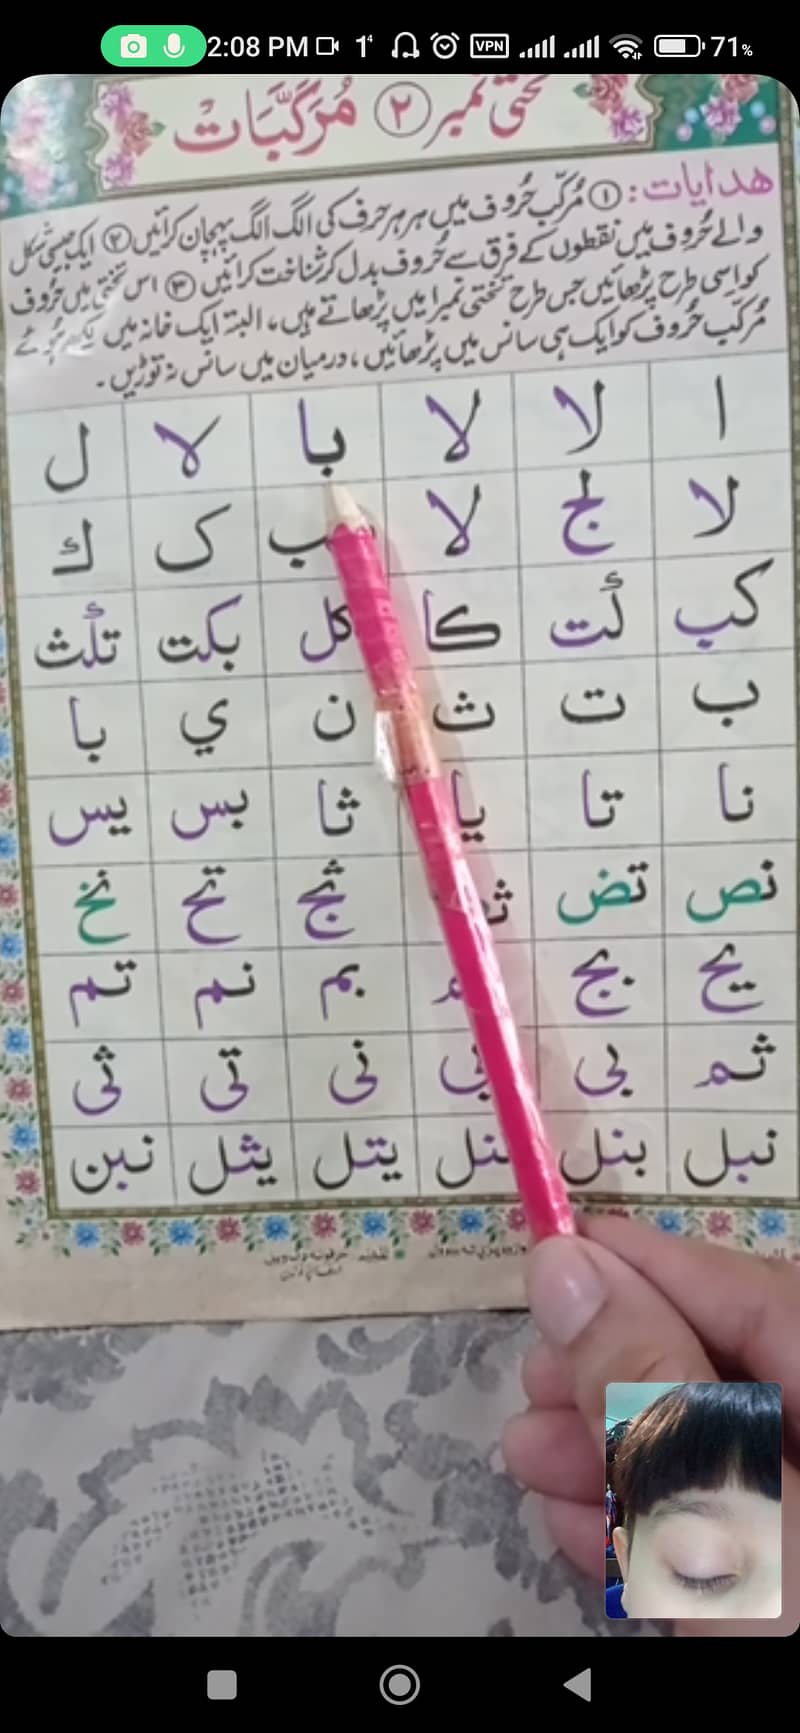 2:08 PM 1⁴ VPN 71%
تختی نمبر ۲ مُرَکَّبَات
هدایات: ① مُرکّب حُروف میں ہر ہر حرف کی الگ الگ پہچان کرائیں ② ایک جیسی شکل
والے حُروف میں نقطوں کے فرق سے حُروف بدل کر شناخت کرائیں ③ اس تختی میں حُروف
کو اِسی طرح پڑھائیں جس طرح تختی نمبر۱ میں پڑھاتے ہیں، البتہ ایک خانہ میں لکھے ہُوئے
مُرکّب حُروف کو ایک ہی سانس میں پڑھائیں، درمیان میں سانس نہ توڑیں۔
ا لا لا با لا ل
لا لج لا ب ک ك
کب لت کا کل بکت تلث
ب ت ث ن ي با
نا تا یا ثا بس یس
نص تض ثج تح نخ
یح بج بم نم تم
ثم بی نی تی ثی
نبل بنل یتل یثل نبن